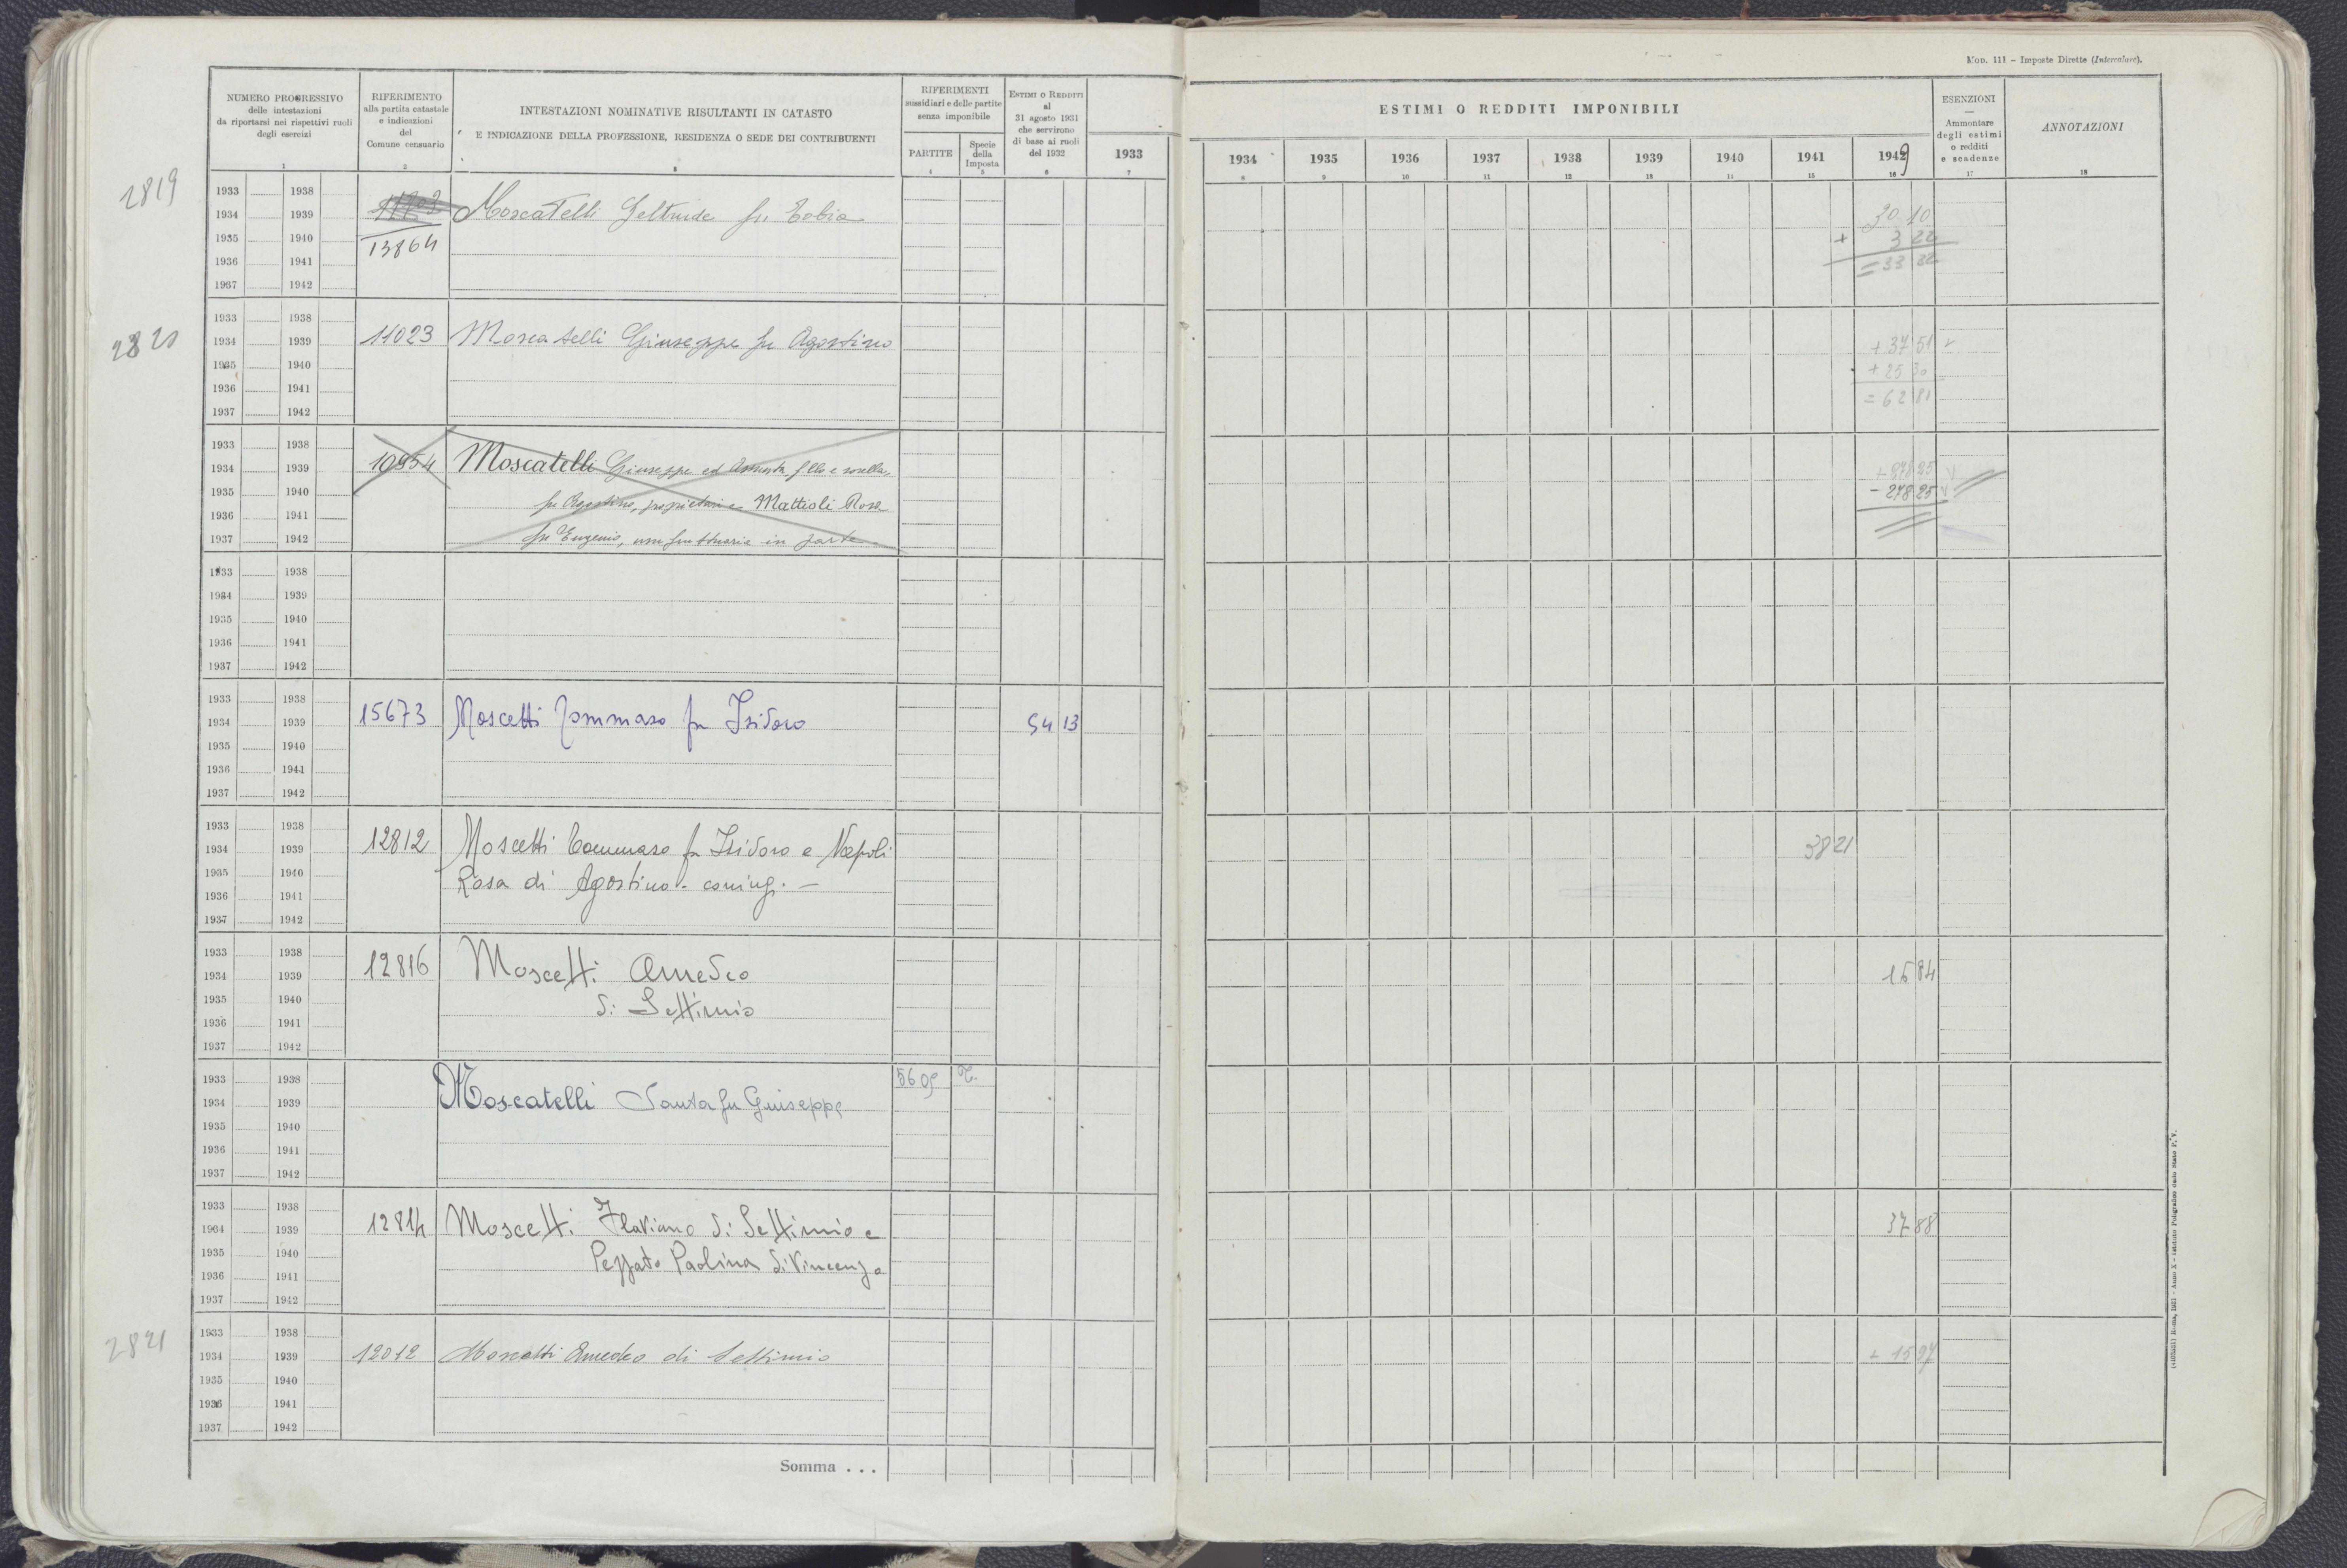 Mod. 111 – Imposte Dirette (Intercalare).
NUMERO PROGRESSIVO
delle intestazioni
da riportarsi nei rispettivi ruoli
degli esercizi
1
RIFERIMENTO
alla partita catastale
e indicazioni
del
Comune censuario
2
INTESTAZIONI NOMINATIVE RISULTANTI IN CATASTO
E INDICAZIONE DELLA PROFESSIONE, RESIDENZA O SEDE DEI CONTRIBUENTI
3
RIFERIMENTI
sussidiari e delle partite
senza imponibile
PARTITE
4
Specie
della
Imposta
5
ESTIMI O REDDITI
al
31 agosto 1931
che servirono
di base ai ruoli
del 1932
6
1933
7
ESTIMI O REDDITI IMPONIBILI
1934 1935 1936 1937 1938 1939 1940 1941 1949
8 9 10 11 12 13 14 15 16
ESENZIONI
—
Ammontare
degli estimi
o redditi
e scadenze
17
ANNOTAZIONI
18
2819
1933 1938
1934 1939 Moscatelli Geltrude fu Tobia 30 10
1935 1940 13864 + 3 22
1936 1941 = 33 32
1937 1942
2820
1933 1938
1934 1939 11023 Moscatelli Giuseppe fu Agostino + 37 51
1935 1940 + 25 30
1936 1941 = 62 81
1937 1942
1933 1938
1934 1939 10954 Moscatelli Giuseppe ed Assunta f.llo e sorella, + 278 25
1935 1940 fu Agostino, proprietari e Mattioli Rosa - 278 25
1936 1941
1937 1942 fu Eugenio, usufruttuaria in parte
1933 1938
1934 1939
1935 1940
1936 1941
1937 1942
1933 1938
1934 1939 15673 Moscetti Tommaso fu Isidoro 54 13
1935 1940
1936 1941
1937 1942
1933 1938
1934 1939 12812 Moscetti Tommaso fu Isidoro e Napoli 38 21
1935 1940 Rosa di Agostino - coniug. –
1936 1941
1937 1942
1933 1938
1934 1939 12816 Moscetti Amedeo 15 84
1935 1940 di Settimio
1936 1941
1937 1942
1933 1938 5609 T.
1934 1939 Moscatelli Santa fu Giuseppe
1935 1940
1936 1941
1937 1942
1933 1938
1934 1939 12814 Moscetti Flaviano di Settimio e 37 88
1935 1940 Pezzato Paolina di Vincenzo
1936 1941
1937 1942
2821
1933 1938
1934 1939 12012 Moscetti Amedeo di Settimio + 15 97
1935 1940
1936 1941
1937 1942
Somma . . .